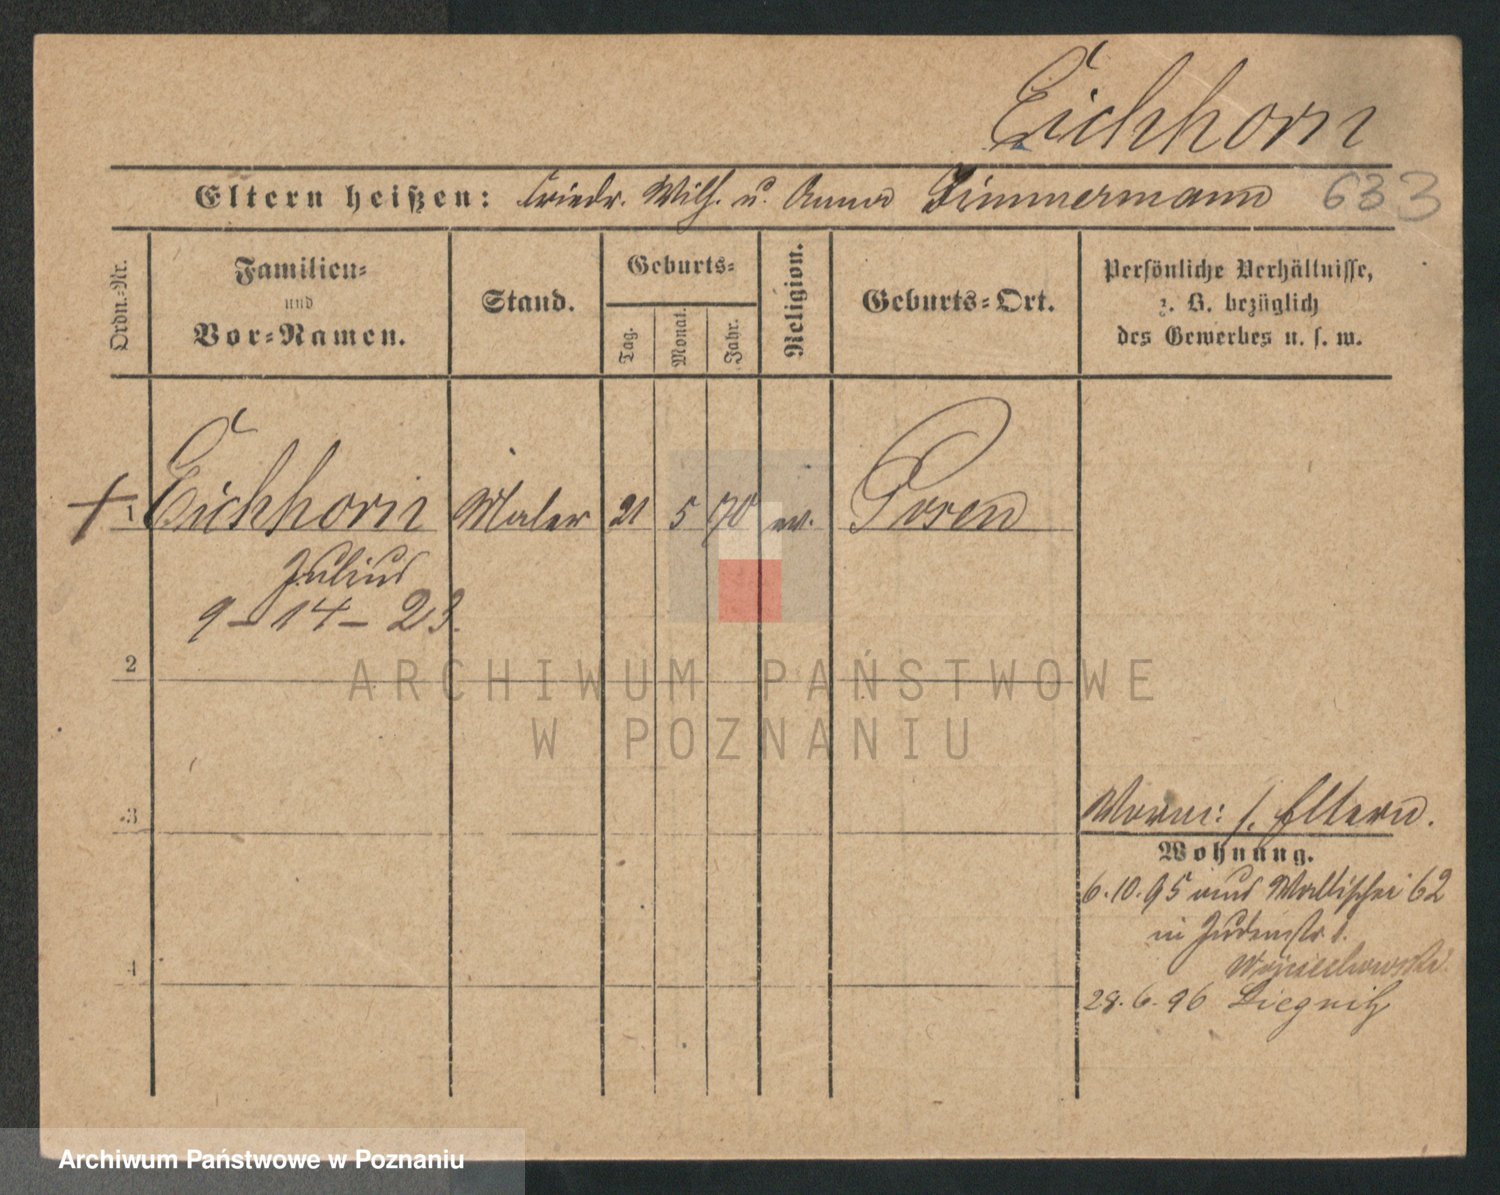 Eichhorn
Eltern heißen: Friedr. Wilh. u. Anna Zimmermann 633
Ordn.-Nr.
Familien-
und
Vor-Namen.
Stand.
Geburts-
Tag.
Monat.
Jahr.
Religion.
Geburts-Ort.
Persönliche Verhältnisse,
z. B. bezüglich
des Gewerbes u. s. w.
1 Eichhorn Maler 21 5 70 ev. Posen
Julius
9-14-23.
2
ARCHIWUM PAŃSTWOWE
W POZNANIU
3
s. Eltern.
Wohnung.
6.10.95 aus Wallischei 62
in Judenstr 1.
Wojciechowski
4
28.6.96 Liegnitz
Archiwum Państwowe w Poznaniu